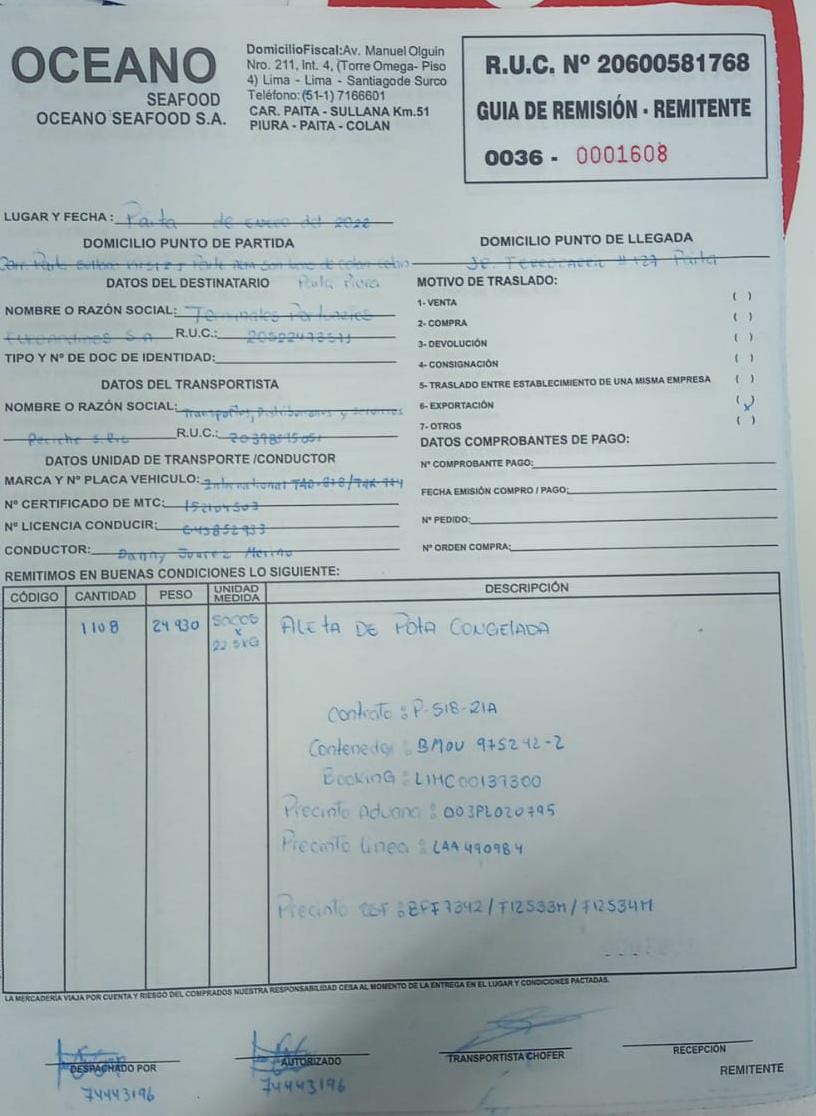 OCEANO
SEAFOOD
OCEANO SEAFOOD S.A.
DomicilioFiscal:Av. Manuel Olguin
Nro. 211, Int. 4, (Torre Omega- Piso
4) Lima - Lima - Santiagode Surco
Teléfono: (51-1) 7166601
CAR. PAITA - SULLANA Km.51
PIURA - PAITA - COLAN
R.U.C. Nº 20600581768
GUIA DE REMISIÓN - REMITENTE
0036 - 0001608
LUGAR Y FECHA : Paita de enero del 2022
DOMICILIO PUNTO DE PARTIDA
DOMICILIO PUNTO DE LLEGADA
# 127 Paita
DATOS DEL DESTINATARIO Paita Piura
NOMBRE O RAZÓN SOCIAL: Terminales Portuarios
Euroandinos S.A R.U.C.: 20522473571
TIPO Y Nº DE DOC DE IDENTIDAD:
DATOS DEL TRANSPORTISTA
NOMBRE O RAZÓN SOCIAL: Transportes, y Servicios
R.U.C.:
DATOS UNIDAD DE TRANSPORTE /CONDUCTOR
MARCA Y Nº PLACA VEHICULO: International
Nº CERTIFICADO DE MTC: 152104503
Nº LICENCIA CONDUCIR:
CONDUCTOR: Danny Juarez Merino
MOTIVO DE TRASLADO:
1- VENTA ( )
2- COMPRA ( )
3- DEVOLUCIÓN ( )
4- CONSIGNACIÓN ( )
5- TRASLADO ENTRE ESTABLECIMIENTO DE UNA MISMA EMPRESA ( )
6- EXPORTACIÓN (x)
7- OTROS ( )
DATOS COMPROBANTES DE PAGO:
Nº COMPROBANTE PAGO:
FECHA EMISIÓN COMPRO / PAGO:
Nº PEDIDO:
Nº ORDEN COMPRA:
REMITIMOS EN BUENAS CONDICIONES LO SIGUIENTE:
CÓDIGO CANTIDAD PESO UNIDAD MEDIDA DESCRIPCIÓN
1108 24 930 SACOS x 22.5KG ALETA DE POTA CONGELADA
Contrato : P-518-21A
Contenedor : BMOU 975242-2
Booking : LIMC00137300
Precinto Aduana : 003PL020795
Precinto Linea : LAA490984
Precinto : BFF7342 / F12533M / F12534M
LA MERCADERÍA VIAJA POR CUENTA Y RIESGO DEL COMPRADOS NUESTRA RESPONSABILIDAD CESA AL MOMENTO DE LA ENTREGA EN EL LUGAR Y CONDICIONES PACTADAS.
DESPACHADO POR
74443196
AUTORIZADO
74443196
TRANSPORTISTA CHOFER
RECEPCIÓN
REMITENTE